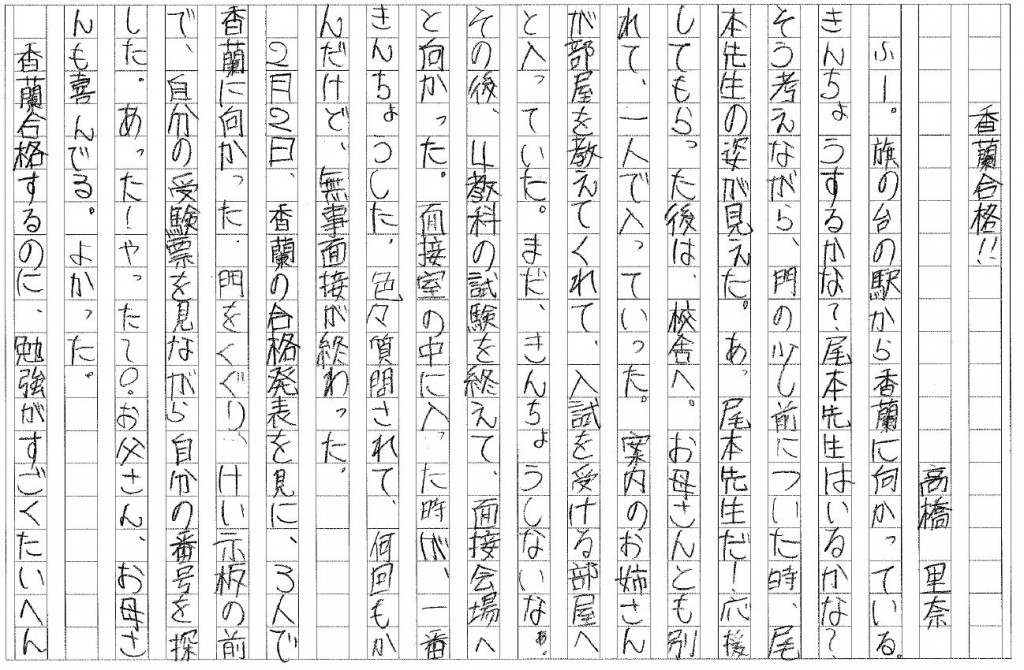 香蘭合格!!
高橋 里奈
ふー。旗の台の駅から香蘭に向かっている。
きんちょうするかな?尾本先生はいるかな?
そう考えながら、門の少し前についた時、尾
本先生の姿が見えた。あ、尾本先生だ!応援
してもらった後は、校舎へ。お母さんとも別
れて、一人で入っていった。案内のお姉さん
が部屋を教えてくれて、入試を受ける部屋へ
と入っていた。まだ、きんちょうしないなぁ。
その後、4教科の試験を終えて、面接会場へ
と向かった。面接室の中に入った時が、一番
きんちょうした。色々質問されて、何回もか
んだけど、無事面接が終わった。
2月2日、香蘭の合格発表を見に、3人で
香蘭に向かった。門をくぐり、けい示板の前
で、自分の受験票を見ながら自分の番号を探
した。あった!やったて○。お父さん、お母さ
んも喜んでる。よかった。
香蘭合格するのに、勉強がすごくたいへん